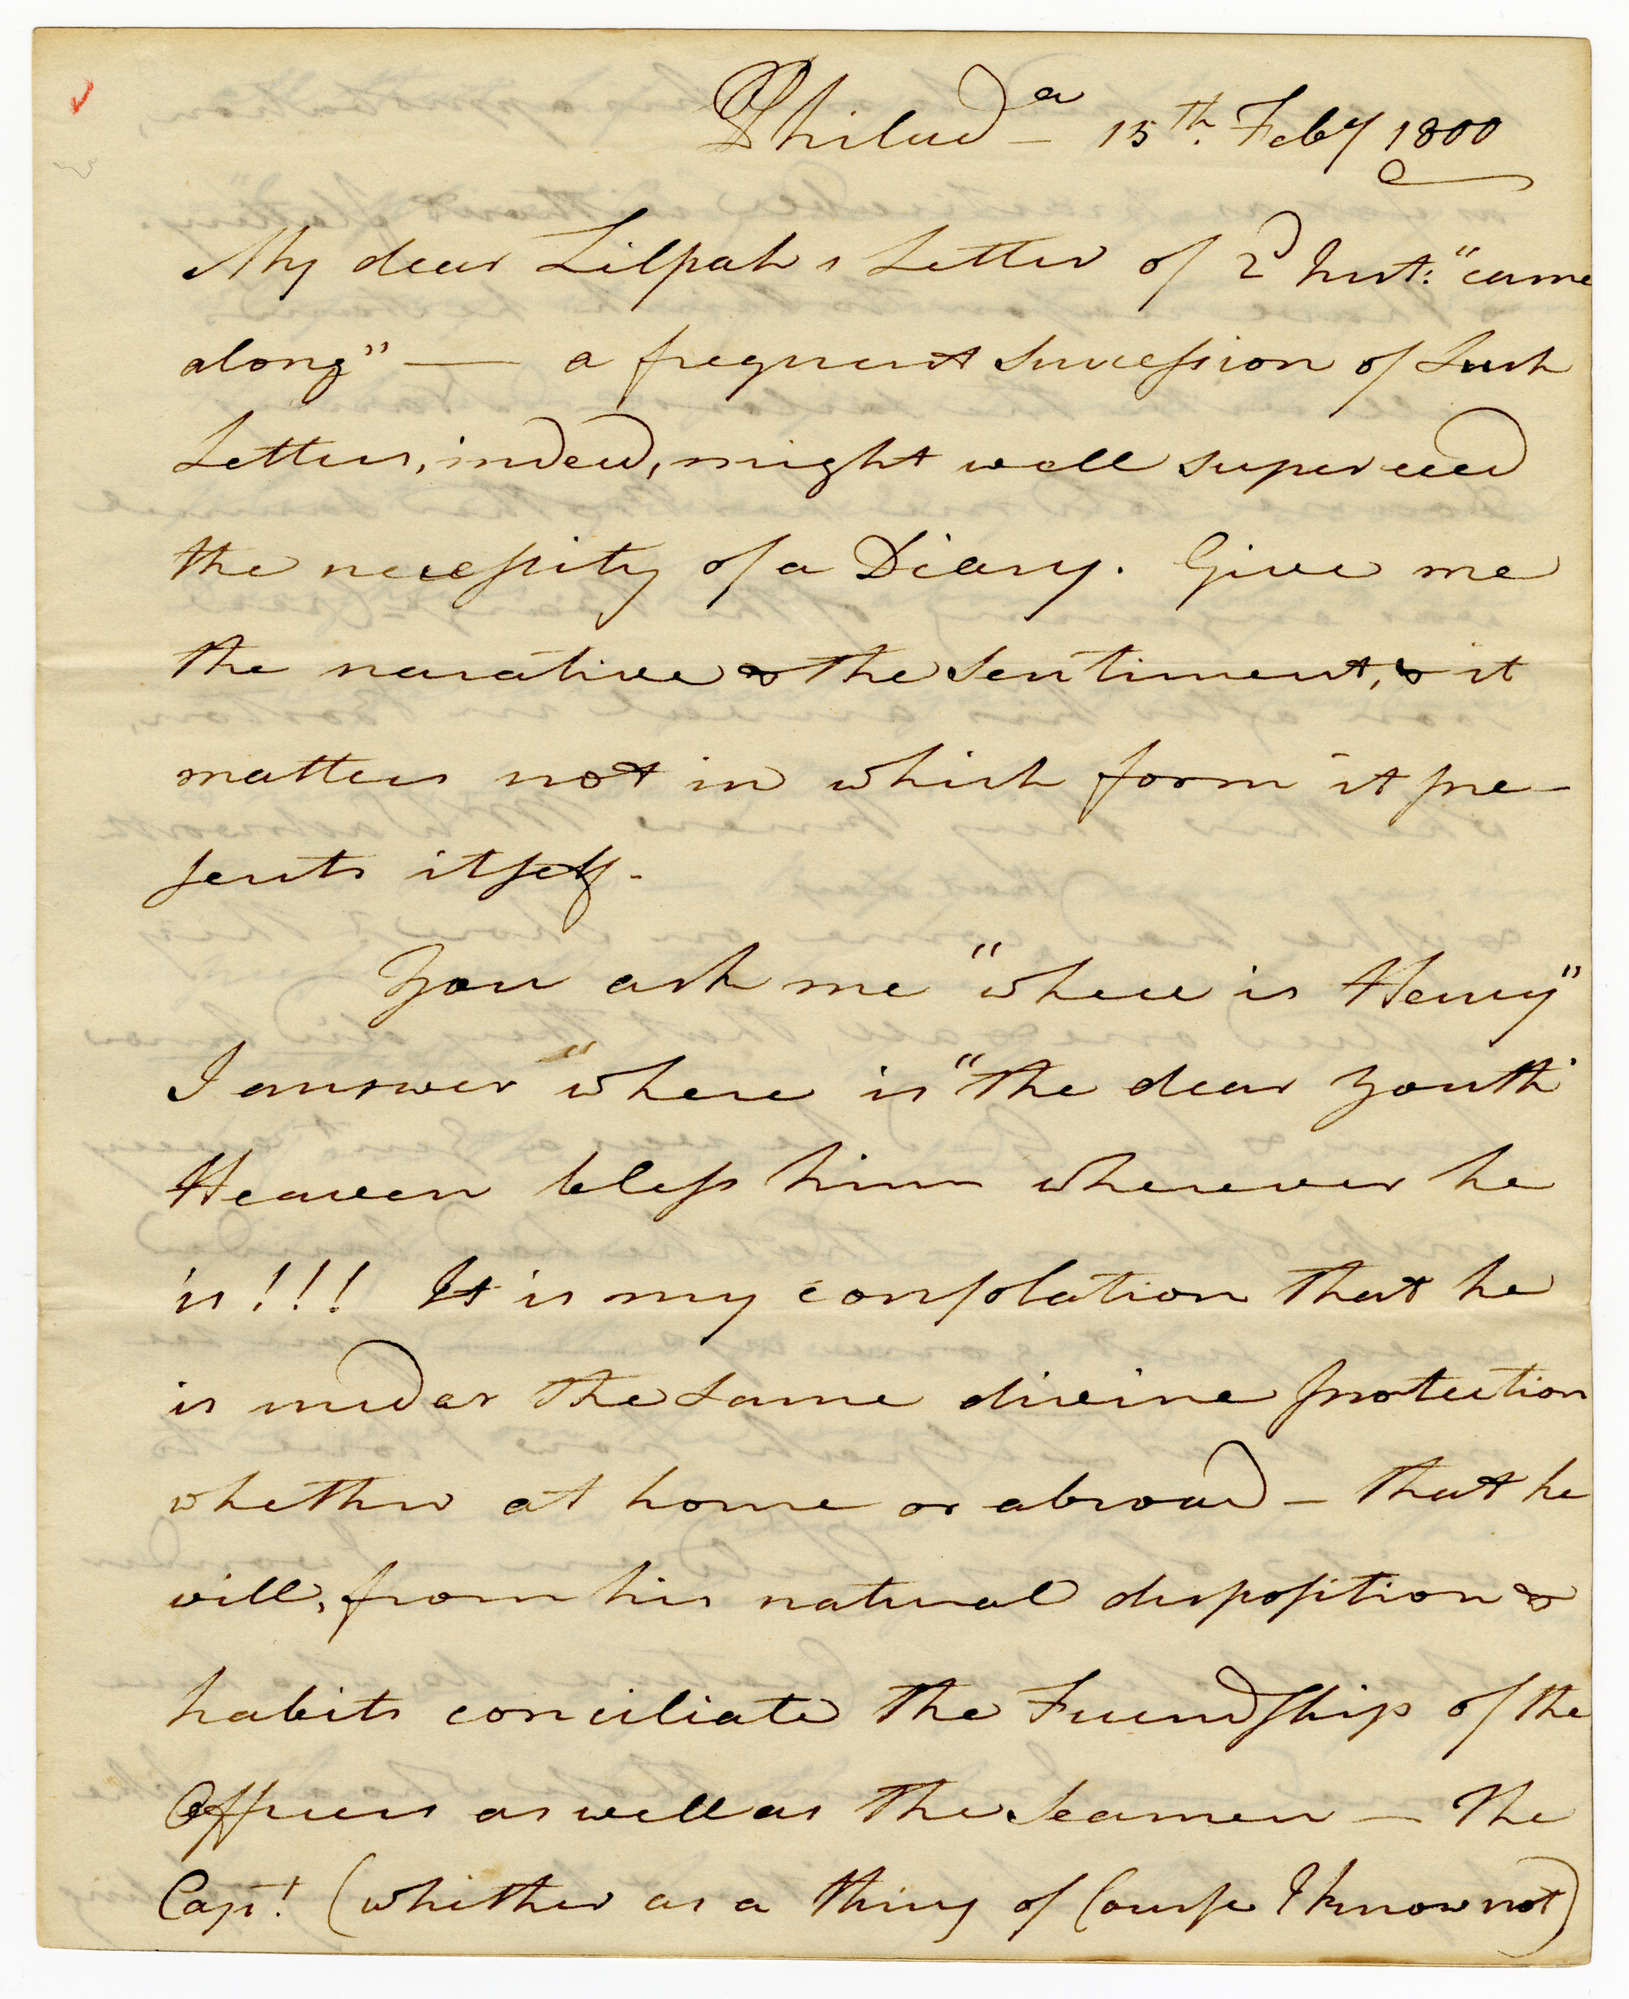 Philad^a — 15^th. Feby 1800
My dear Lilpah's Letter of 2^d Inst: "came
along" — a frequent succession of such
Letters, indeed, might well superceed
the necessity of a Diary. Give me
the narative & the sentiment, & it
matters not in which form it pre-
sents itself.
You ask me "where is Henry"
I answer "where is "the dear Youth"
Heaven bless him wherever he
is!!! It is my consolation that he
is under the same divine protection
whether at home or abroad — that he
will, from his natural disposition &
habits conciliate the Friendship of the
Officers as well as the Seamen — The
Capt! (whither as a thing of Course I know not)